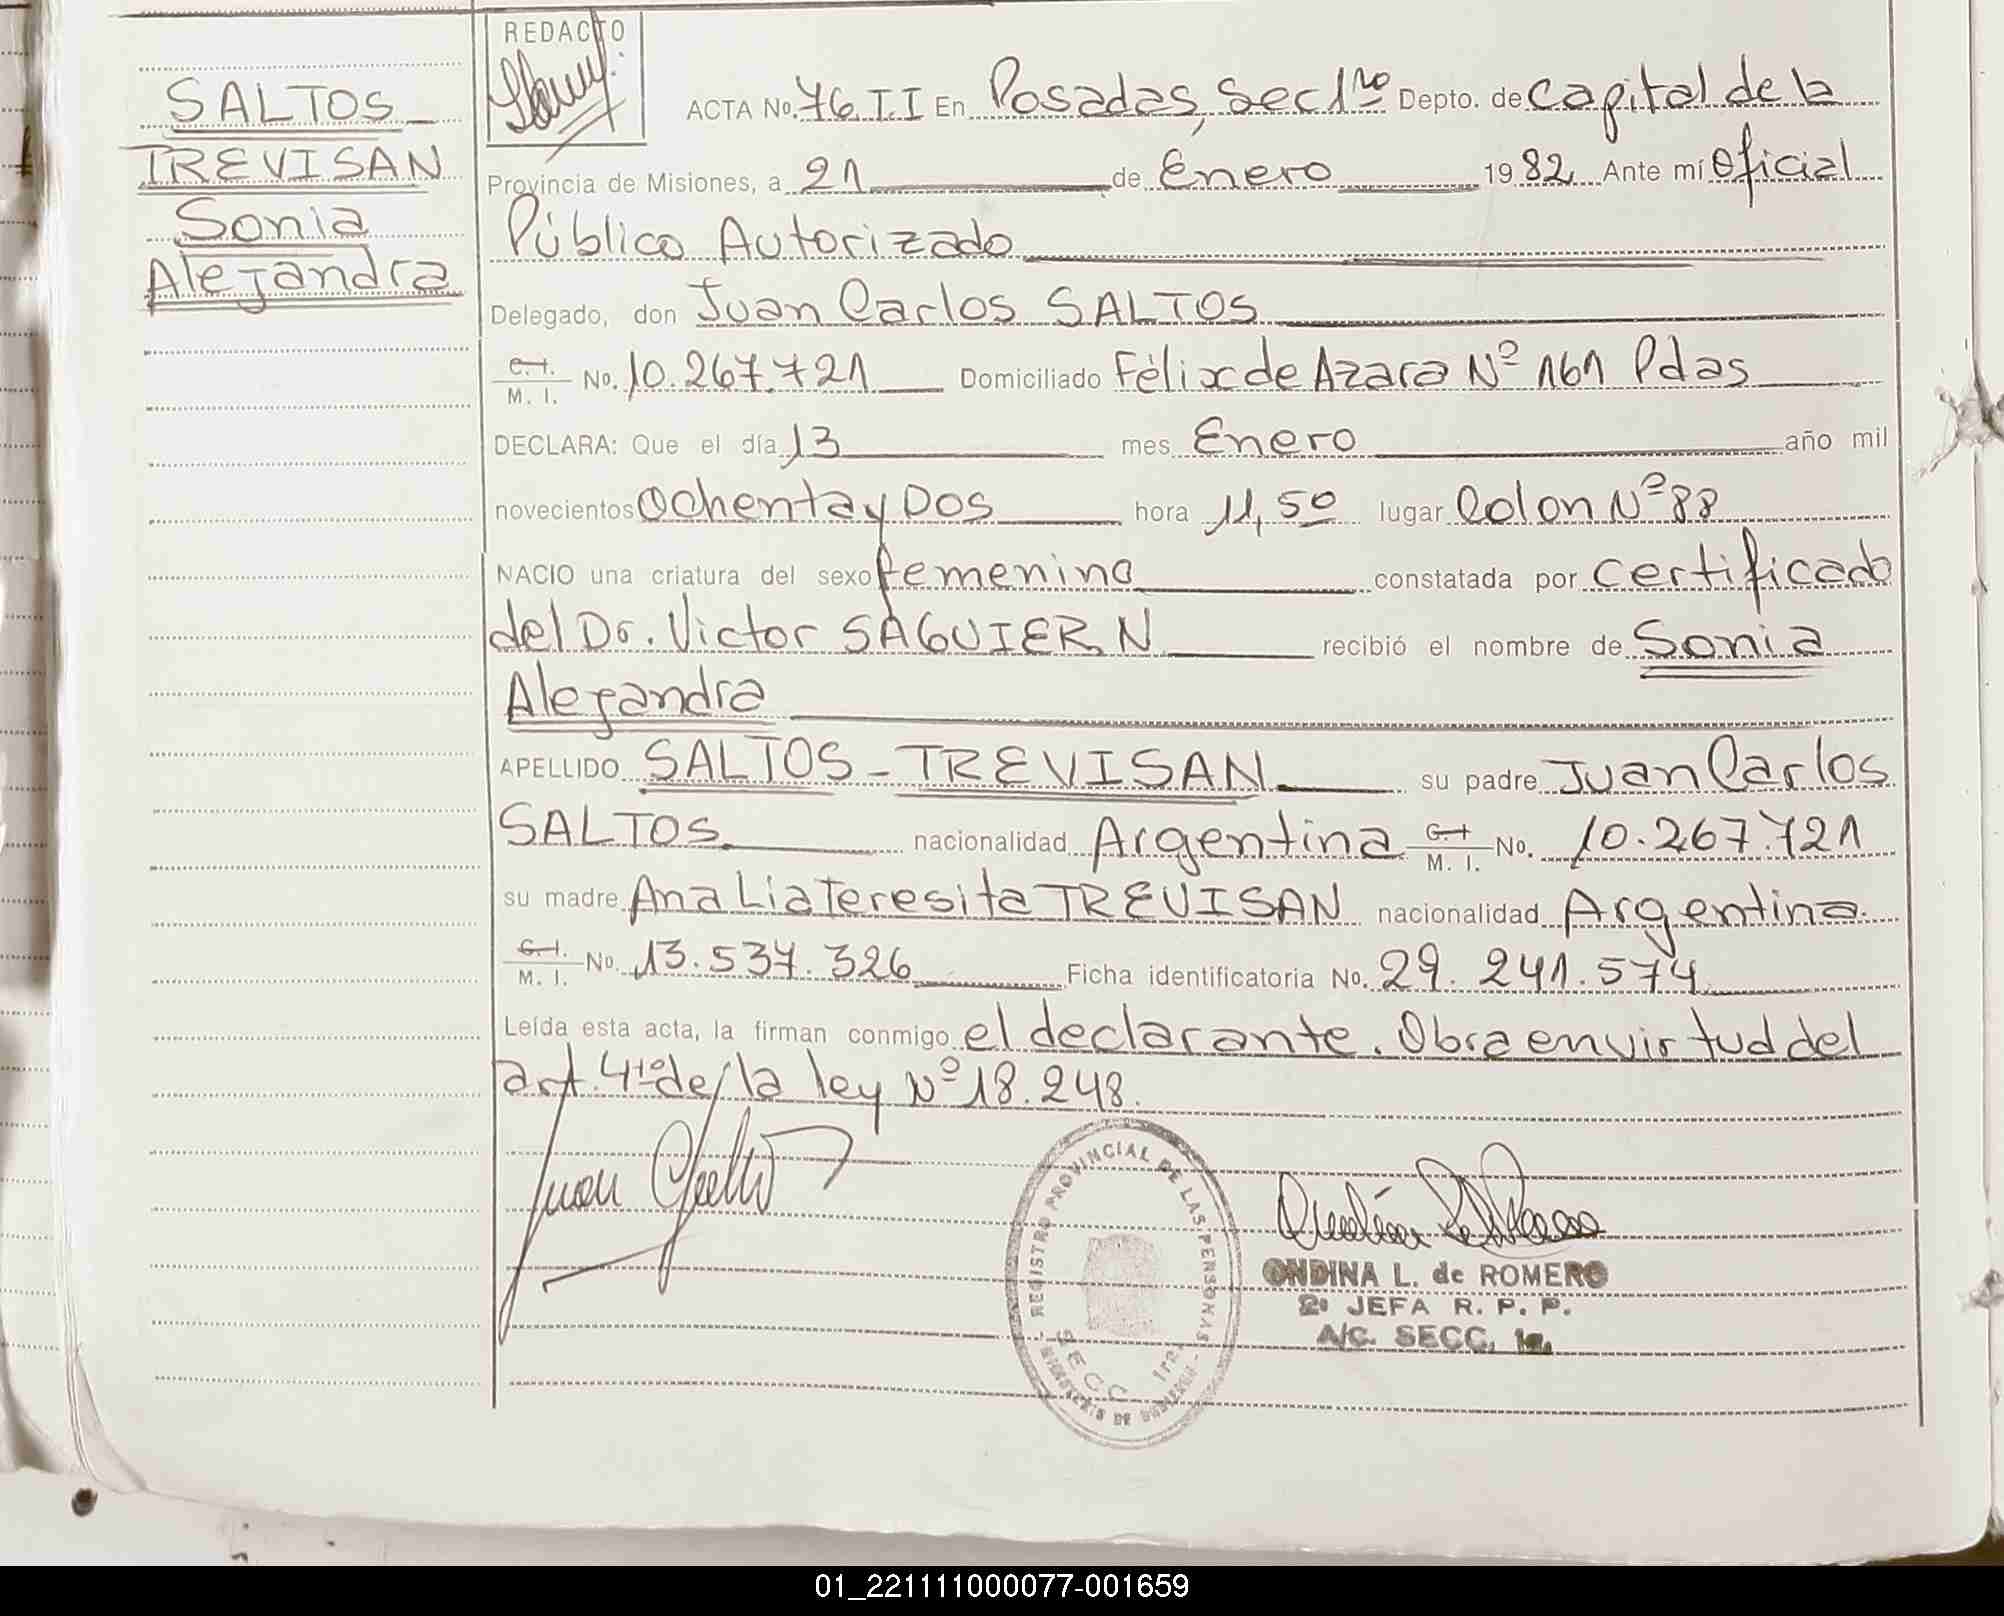 SALTOS_
TREVISAN
Sonia
Alejandra
REDACTO
ACTA No. 76 T.I En Posadas, Sec 1ra Depto. de Capital de la
Provincia de Misiones, a 21 de Enero 1982 Ante mí Oficial
Público Autorizado
Delegado, don Juan Carlos SALTOS
C.I. / M. I. No. 10.267.721 Domiciliado Félix de Azara Nº 161 Pdas
DECLARA: Que el día 13 mes Enero año mil
novecientos Ochenta y Dos hora 11,50 lugar Colon Nº 88
NACIO una criatura del sexo femenino constatada por Certificado
del Dr. Victor SAGUIER N recibió el nombre de Sonia
Alejandra
APELLIDO SALTOS - TREVISAN su padre Juan Carlos
SALTOS nacionalidad Argentina C.I / M. I. No. 10.267.721
su madre Ana Lia Teresita TREVISAN nacionalidad Argentina
C.I. / M. I. No. 13.537.326 Ficha identificatoria No. 29.241.574
Leída esta acta, la firman conmigo el declarante. Obra en virtud del
art. 4to de la ley Nº 18.248.
REGISTRO PROVINCIAL DE LAS PERSONAS
SECC 1ra
MINISTERIO DE GOBIERNO
ONDINA L. de ROMERO
2º JEFA R. P. P.
A/C. SECC. 1a.
01_221111000077-001659